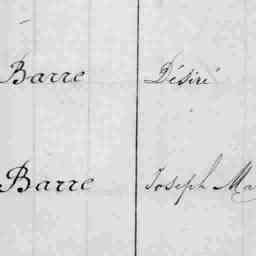 Barre Désiré
Barre Joseph